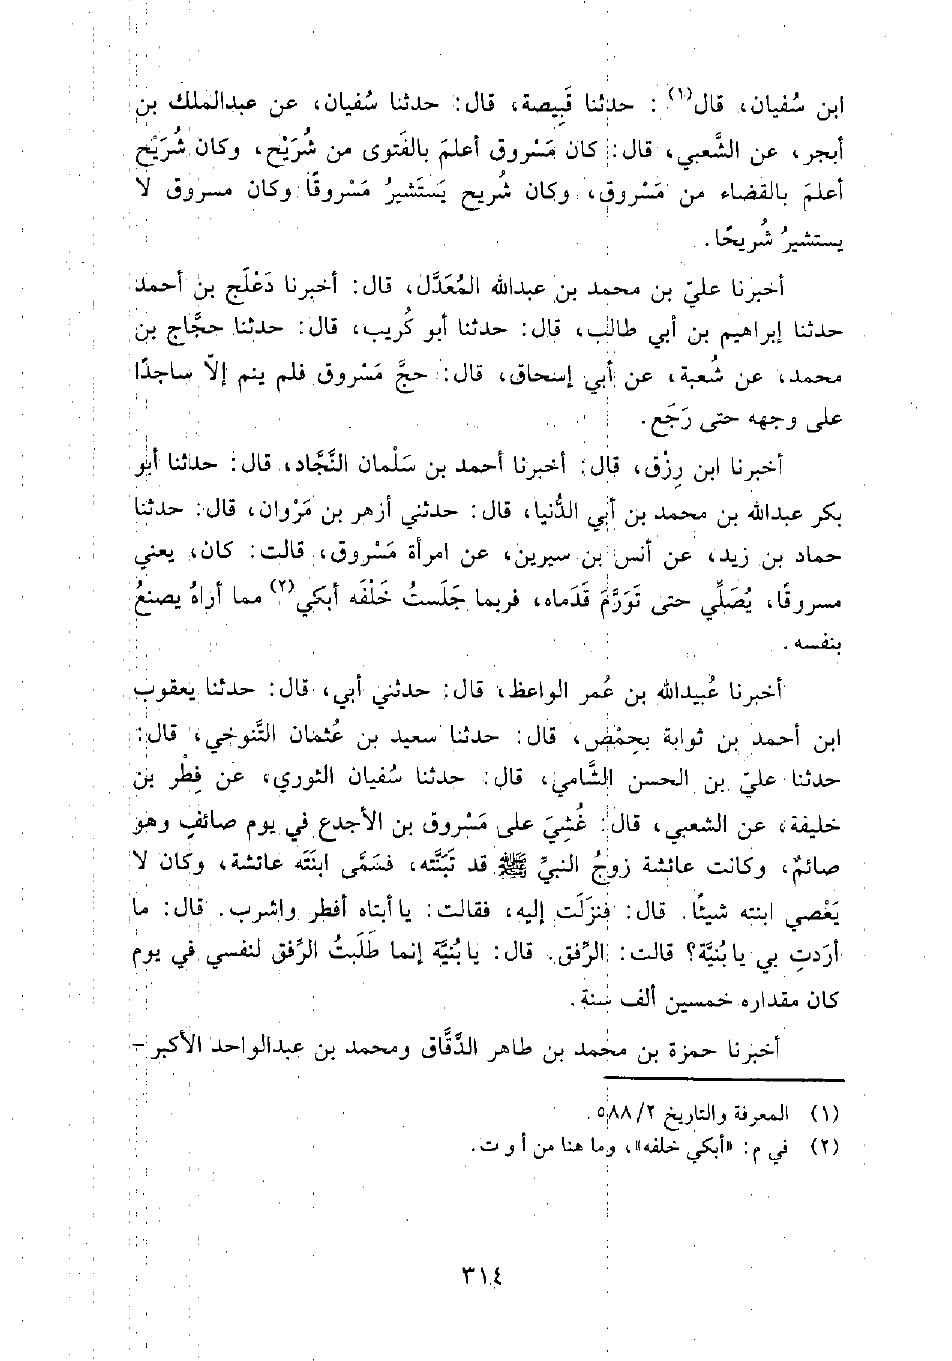 ابن سُفيان، قال(١) : حدثنا قَبِيصة، قال: حدثنا سُفيان، عن عبدالملك بن
أبجر، عن الشَّعبي، قال: كان مَسْروق أعلمَ بالفَتوى من شُرَيْح، وكان شُرَيْح
أعلمَ بالقضاء من مَسْروق، وكان شُريح يَستَشيرُ مَسْروقًا وكان مسروق لا
يستشيرُ شُريحًا.
أخبرنا عليّ بن محمد بن عبدالله المُعَدَّل، قال: أخبرنا دَعْلَج بن أحمد
حدثنا إبراهيم بن أبي طالب، قال: حدثنا أبو كُريب، قال: حدثنا حجَّاج بن
محمد، عن شُعبة، عن أبي إسحاق، قال: حجَّ مَسْروق فلم ينم إلاّ ساجدًا
على وجهه حتى رَجَع.
أخبرنا ابن رِزْق، قال: أخبرنا أحمد بن سَلْمان النَّجَّاد، قال: حدثنا أبو
بكر عبدالله بن محمد بن أبي الدُّنيا، قال: حدثني أزهر بن مَرْوان، قال: حدثنا
حماد بن زيد، عن أنس بن سيرين، عن امرأة مَسْروق، قالت: كان، يعني
مسروقًا، يُصَلِّي حتى تَوَرَّمَ قَدَماه، فربما جَلَستُ خَلْفَه أبكي(٢) مما أراهُ يصنعُ
بنفسه.
أخبرنا عُبيدالله بن عُمر الواعظ، قال: حدثني أبي، قال: حدثنا يعقوب
ابن أحمد بن ثوابة بحِمْص، قال: حدثنا سعيد بن عُثمان التَّنوخي، قال:
حدثنا عليّ بن الحسن الشَّامي، قال: حدثنا سُفيان الثوري، عن فِطْر بن
خليفة، عن الشعبي، قال: غُشِيَ على مَسْروق بن الأجدع في يوم صائفٍ وهو
صائمٌ، وكانت عائشة زوجُ النبيِّ ﷺ قد تَبَنَّته، فسَمَّى ابنَتَه عائشة، وكان لا
يَعْصي ابنته شيئًا. قال: فنزَلَت إليه، فقالت: يا أبتاه أفطر واشرب. قال: ما
أرَدتِ بي يا بُنيَّة؟ قالت: الرِّفق. قال: يا بُنيَّة إنما طَلَبتُ الرِّفق لنفسي في يوم
كان مقداره خمسين ألف سنة.
أخبرنا حمزة بن محمد بن طاهر الدَّقَّاق ومحمد بن عبدالواحد الأكبر -
(١) المعرفة والتاريخ ٢/ ٥٨٨.
(٢) في م: «أبكي خلفه»، وما هنا من أ و ت.
٣١٤